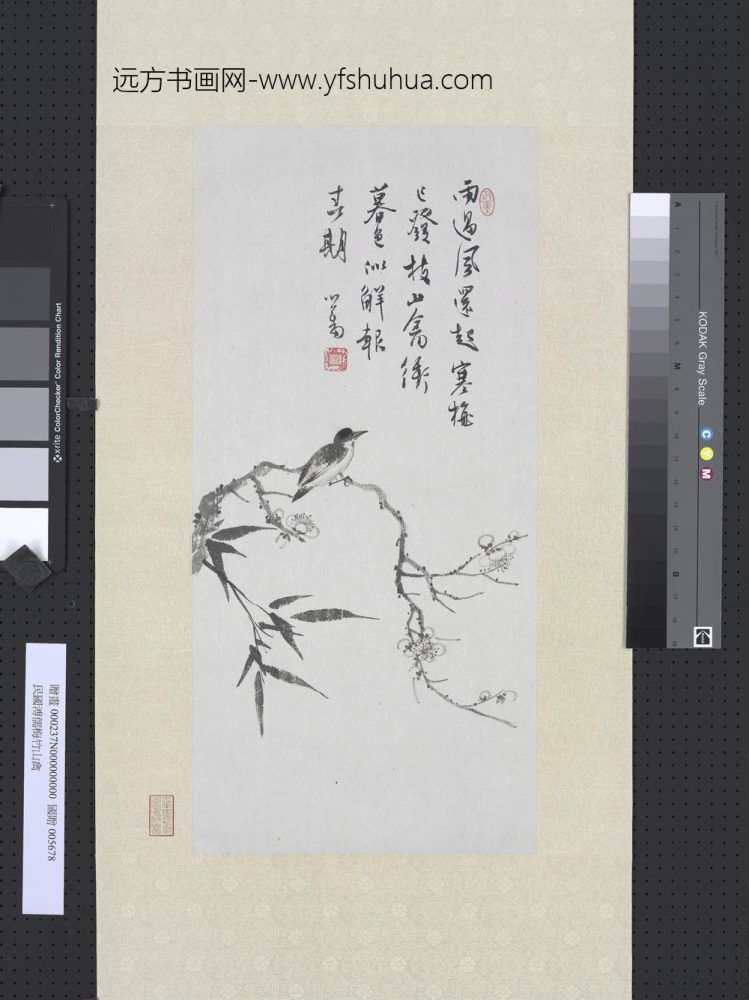 远方书画网-www.yfshuhua.com
雨過風還起寒梅
已發枝山禽銜
暮色似解報
春期 心畬
KODAK Gray Scale
C Y M
A 1 2 3 4 5 6 M 8 9 10 11 12 13 14 15 B 17 18 19
x-rite ColorChecker Color Rendition Chart
贈畫 000237N000000000 國贈 005678
民國溥儒梅竹山禽